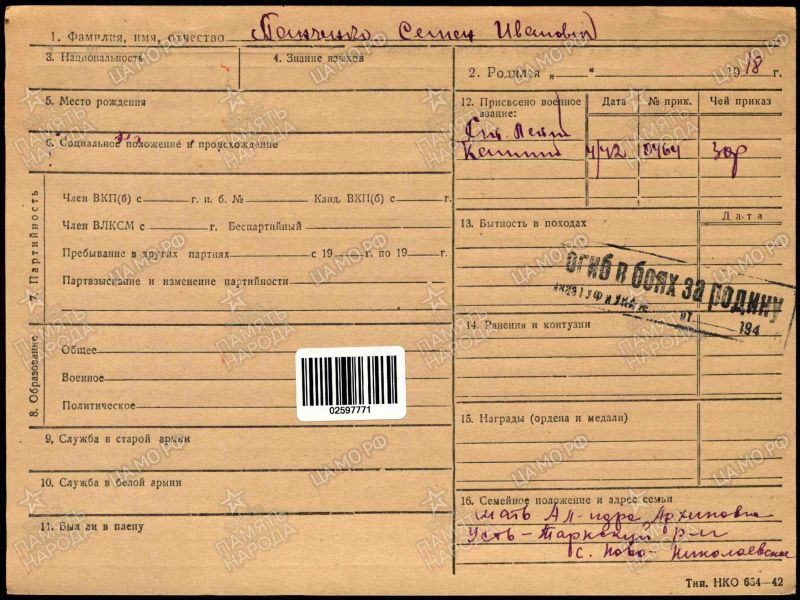 1. Фамилия, имя, отчество Панченко Семен Иванович
2. Родился „ “ 1918 г.
3. Национальность
4. Знание языков
5. Место рождения
6. Социальное положение и происхождение
7. Партийность
Член ВКП(б) с г. п. б. № Канд. ВКП(б) с г.
Член ВЛКСМ с г. Беспартийный
Пребывание в других партиях с 19 г. по 19 г.
Партвзыскание и изменение партийности
8. Образование
Общее
Военное
Политическое
02597771
9. Служба в старой армии
10. Служба в белой армии
11. Был ли в плену
12. Присвоено военное звание: Дата № прик. Чей приказ
4/42 0464
13. Бытность в походах Дата
огиб в боях за родину
от 194
14. Ранения и контузии
15. Награды (ордена и медали)
16. Семейное положение и адрес семьи
мать Ал-ндра Архиповна
Усть-Таркский р-н
с. Ново-Николаевское
Тип. НКО 654—42
ПАМЯТЬ НАРОДА
ЦАМО.РФ